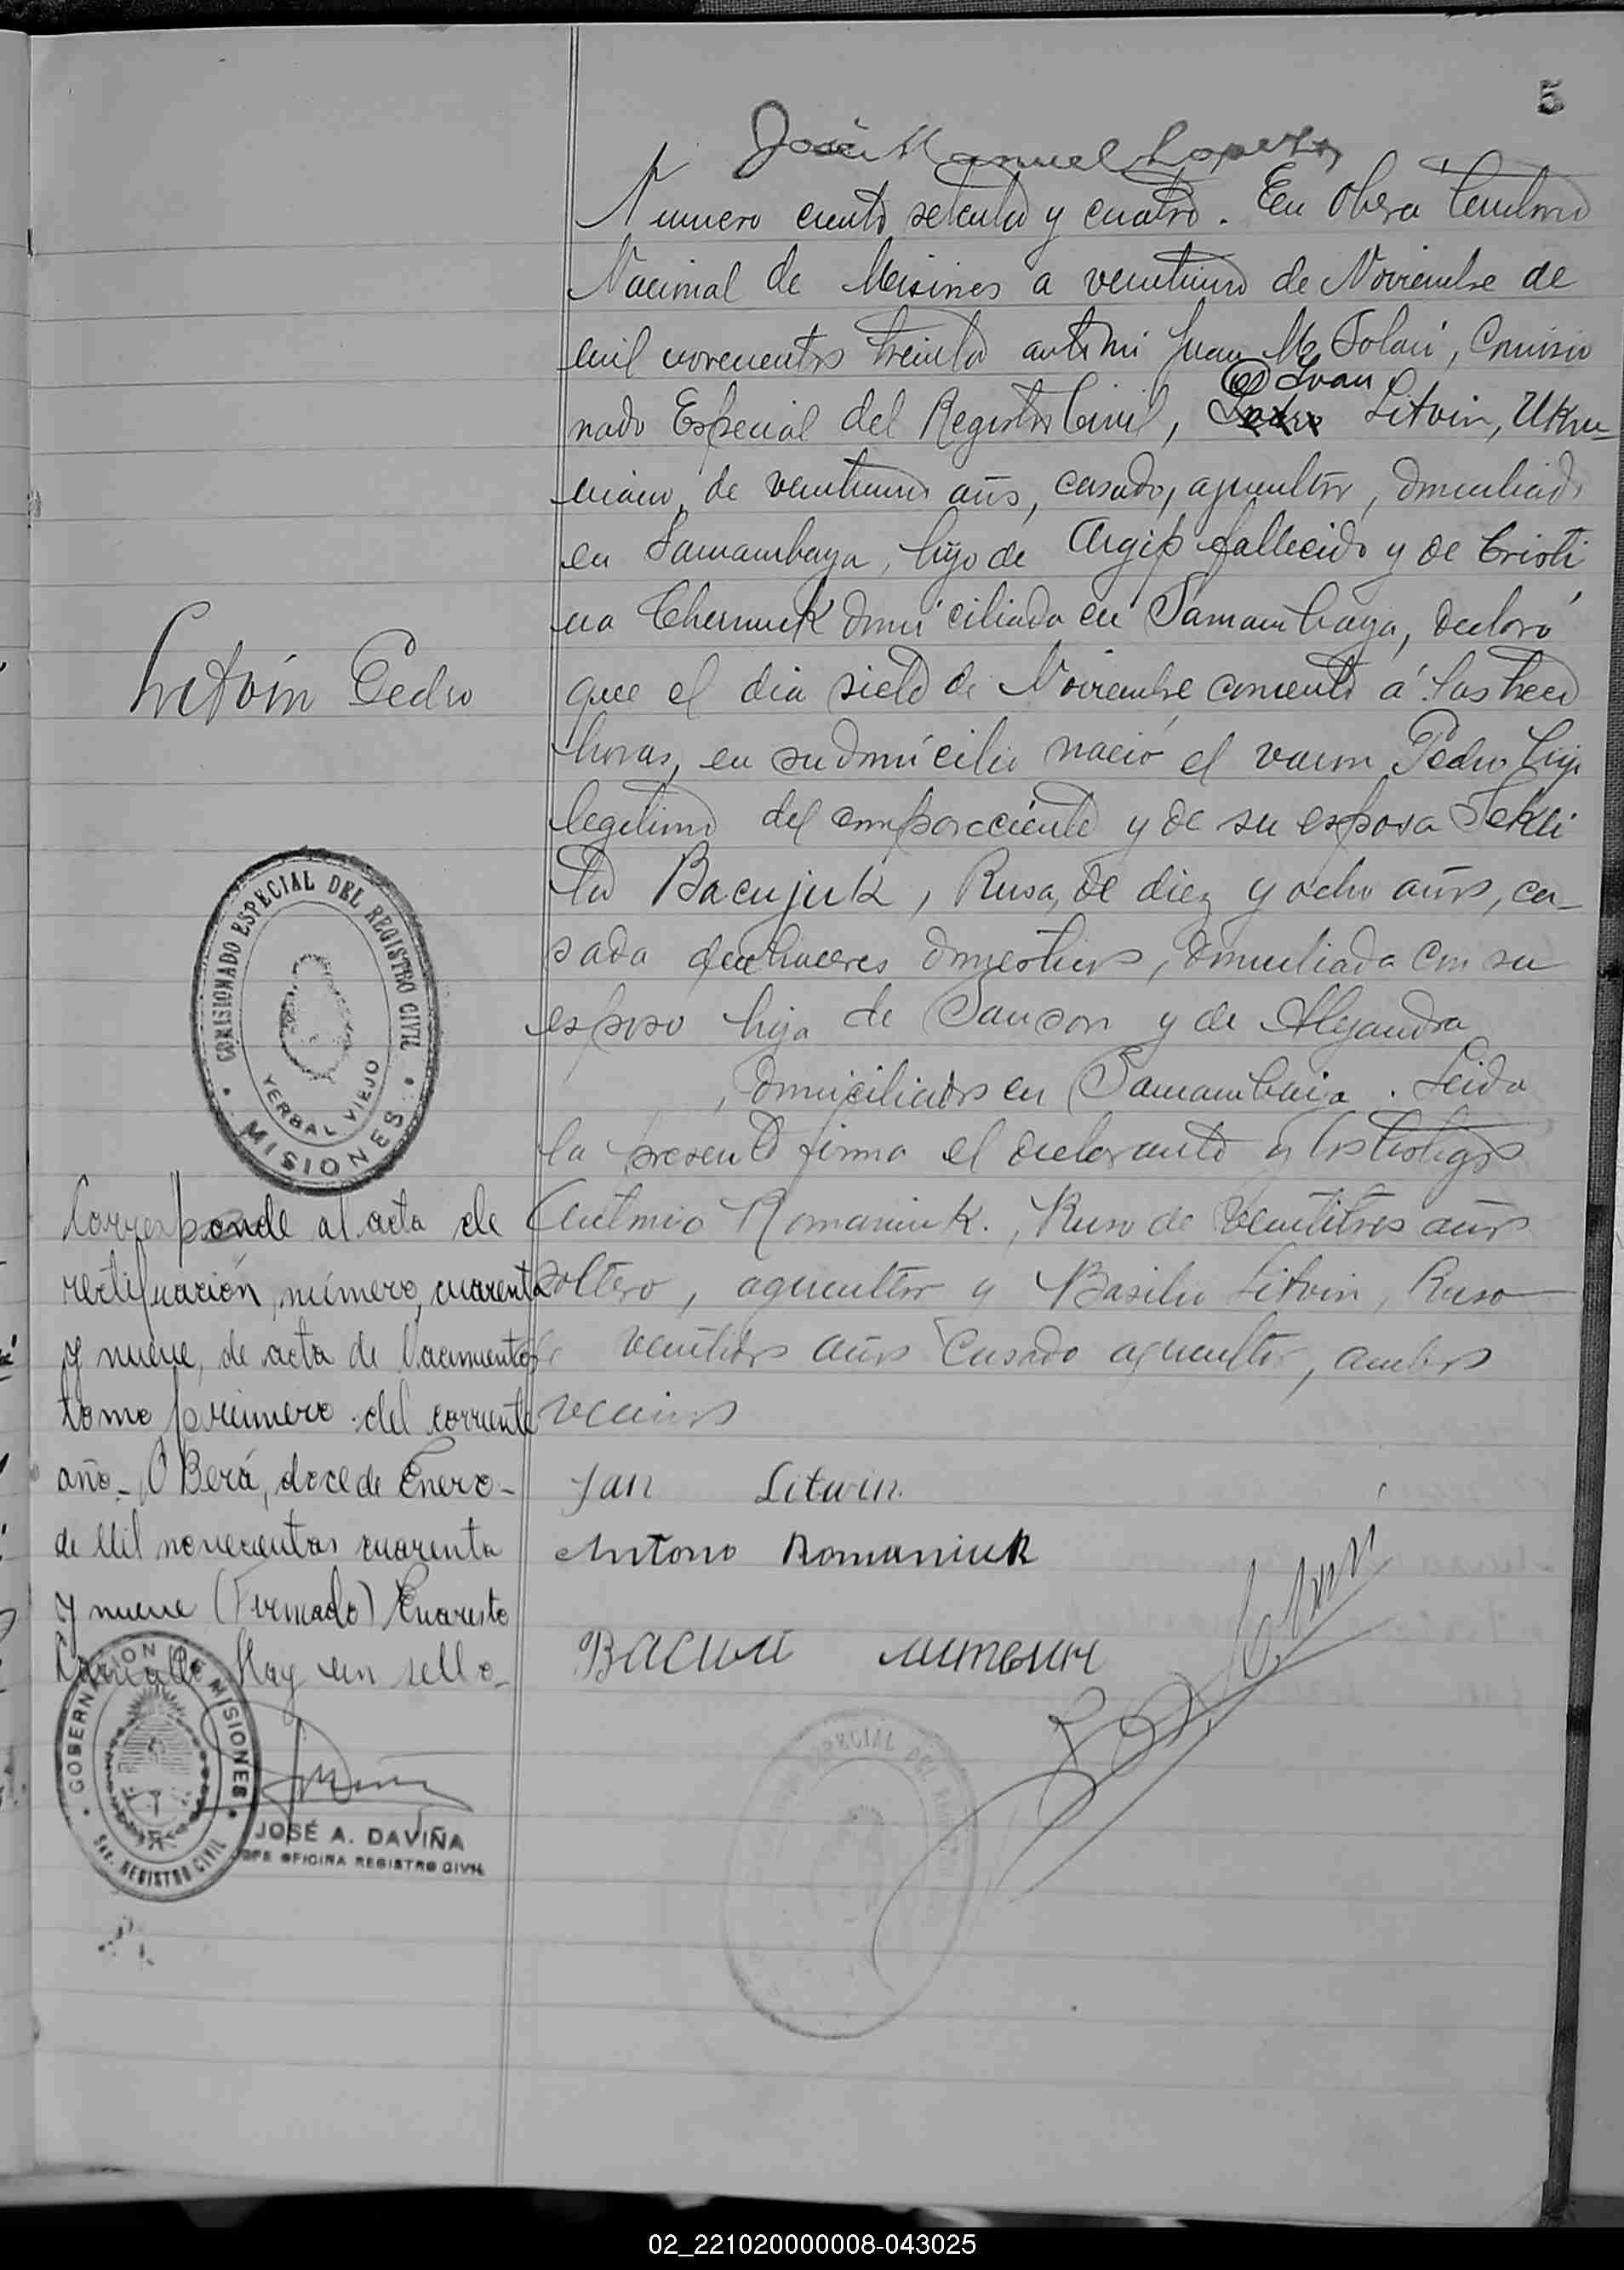 5
José Manuel Lopez
Numero ciento setenta y cuatro. En Obera territorio
Nacional de Misiones a veintiuno de Noviembre de
mil novecientos treinta ante mi Juan M. Solari, Comisio
nado Especial del Registro Civil, Litvin, Ukra-
Ivan
niano, de veintiuno años, casado, agricultor, domiciliado
en Samambaya, hijo de Argip fallecido y de Cristi
na Chernuk domiciliada en Samambaya, declaró
que el dia siete de Noviembre corriente á las trece
horas, en su domicilio nació el varon Pedro hijo
legitimo del compareciente y de su esposa Tekli
ta Bacujuk, Rusa, de diez y ocho años, ca-
sada quehaceres domesticos, domiciliada con su
esposo hija de y de Alejandra
, domiciliados en Samambaia. Leida
la presente firma el declarante y los testigos
Antonio Romaniuk., Ruso de veintitres años
soltero, agricultor y Basilio Litvin, Ruso
de veintidos años casado agricultor, ambos
vecinos
Jan Litwin.
Antono Romaniuk
Litvin Pedro
COMISIONADO ESPECIAL DEL REGISTRO CIVIL
YERBAL VIEJO
MISIONES
Corresponde al acta de
rectificación, número, cuarenta
y nueve, de acta de Nacimiento,
tomo primero del corriente
año- OBerá, doce de Enero-
de Mil novecientos cuarenta
y nueve (Firmado) Evaristo
Hay un sello-
GOBERNACION DE MISIONES
REGISTRO CIVIL
JOSÉ A. DAVIÑA
JEFE OFICINA REGISTRO CIVIL
ESPECIAL DEL
02_221020000008-043025